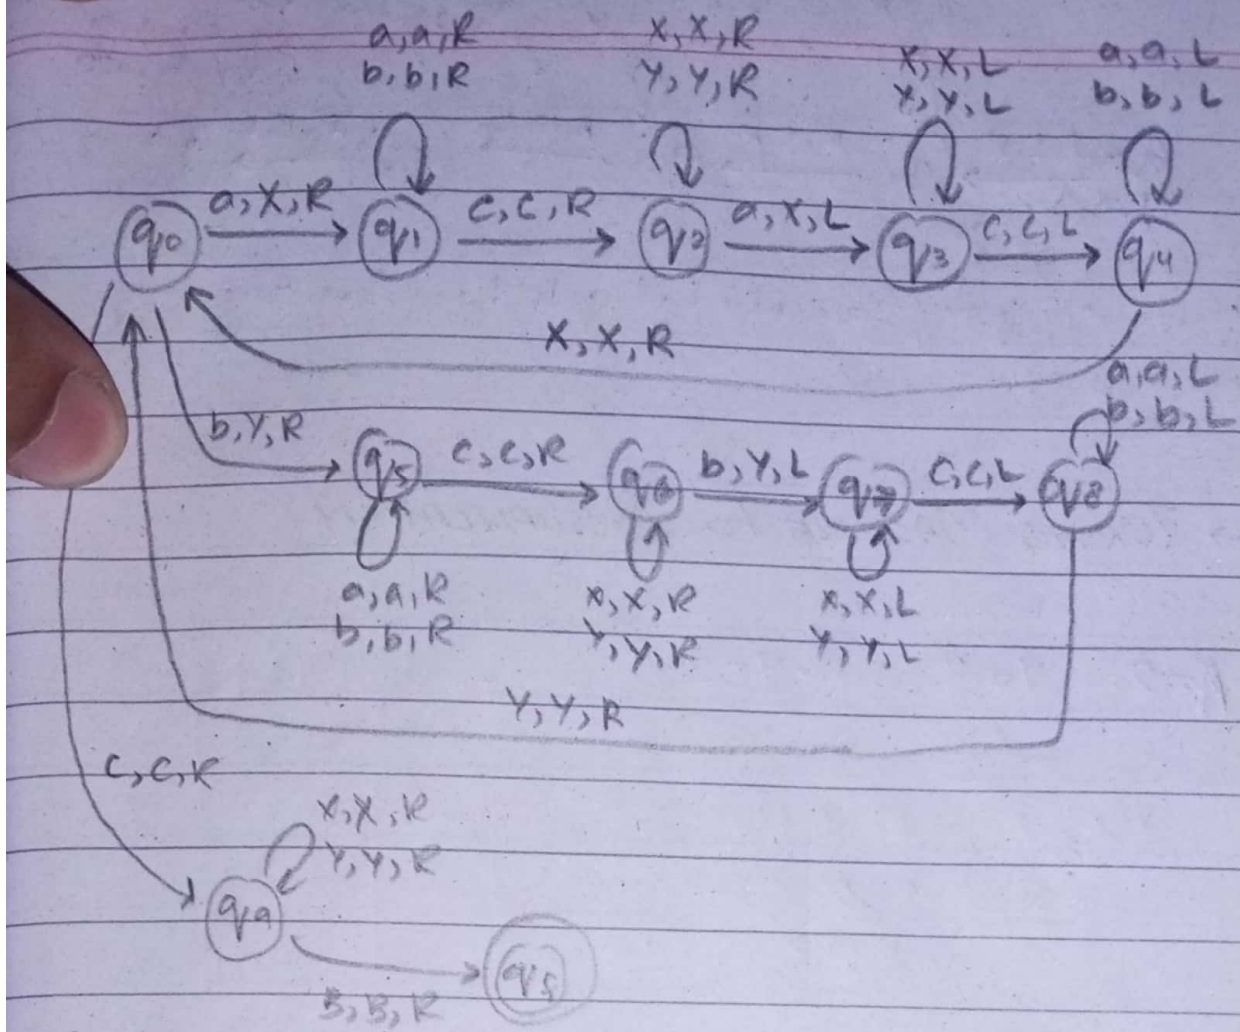 a,a,R
b,b,R
X,X,R
Y,Y,R
X,X,L
Y,Y,L
a,a,L
b,b,L
q0
a,X,R
q1
C,C,R
q2
a,X,L
q3
C,C,L
q4
X,X,R
a,a,L
b,b,L
b,Y,R
q5
C,C,R
q6
b,Y,L
q7
C,C,L
q8
a,a,R
b,b,R
X,X,R
Y,Y,R
X,X,L
Y,Y,L
Y,Y,R
C,C,R
X,X,R
Y,Y,R
q9
B,B,R
qf